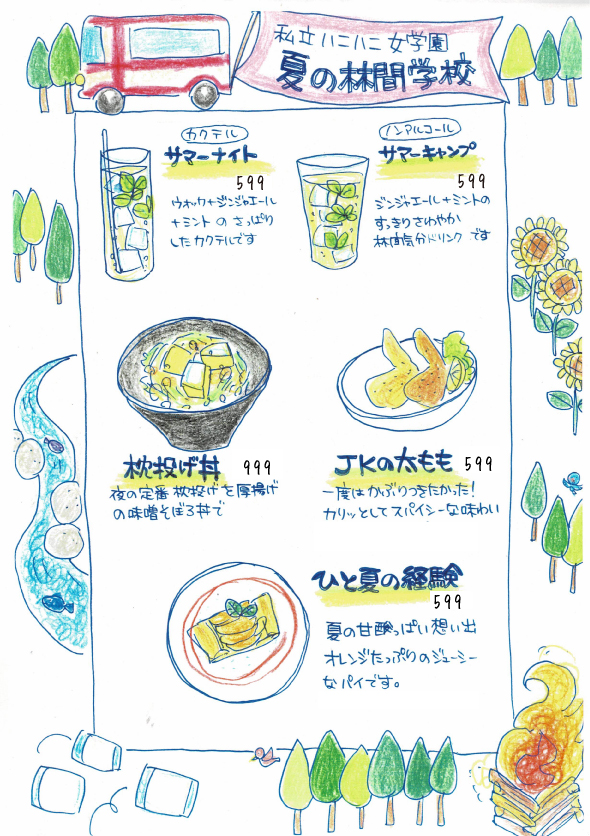 私立ハニハニ女学園
夏の林間学校
カクテル
サマーナイト
599
ウォッカ+ジンジャエール
+ミントのさっぱり
したカクテルです
ノンアルコール
サマーキャンプ
599
ジンジャエール+ミントの
すっきりさわやか
林間気分ドリンクです
枕投げ丼 999
夜の定番枕投げを厚揚げ
の味噌そぼろ丼で
JKの太もも 599
一度はかぶりつきたかった!
カリッとしてスパイシーな味わい
ひと夏の経験
599
夏の甘酸っぱい想い出
オレンジたっぷりのジューシー
なパイです。